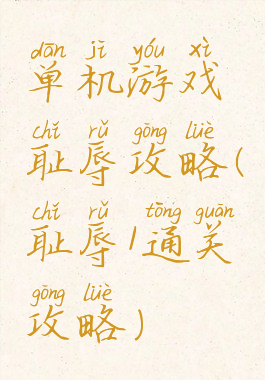 dān jī yóu xì
单机游戏
chǐ rǔ gōng lüè
耻辱攻略(
chǐ rǔ tōng guān
耻辱1通关
gōng lüè
攻略)